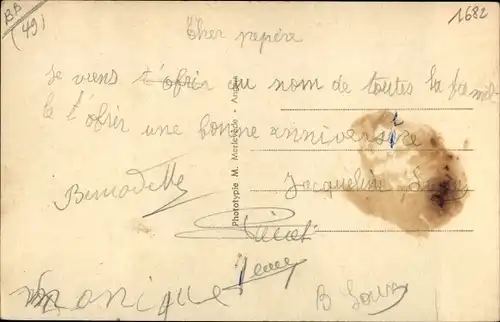 BP
(49)
1682
Cher pepère
Je viens t'ofrir au nom de toutes la famil
le t'ofrir une bonne anniversaire
Bernadette
Jacqueline
Phototypie M. Marlevède - 
Monique
B Louis